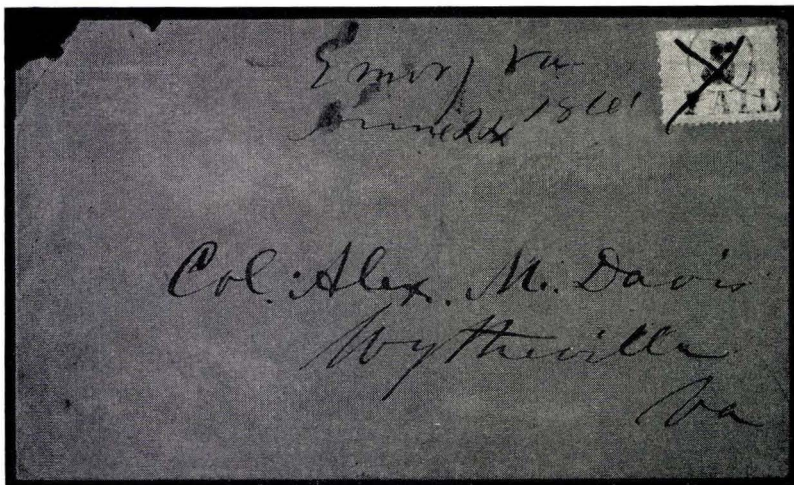 Emory Va
June 1861
PAID
Col. Alex. M. Davis
Wytheville
Va